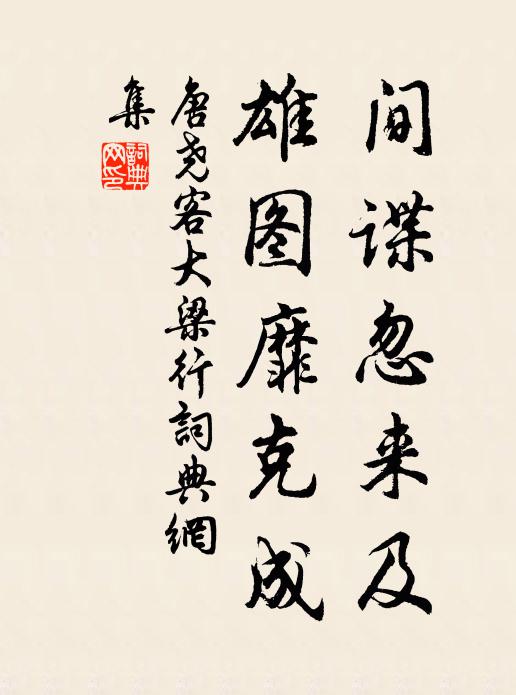 间谍忽来及
雄图靡克成
唐尧客大梁行詞典網
集
詞典
网印